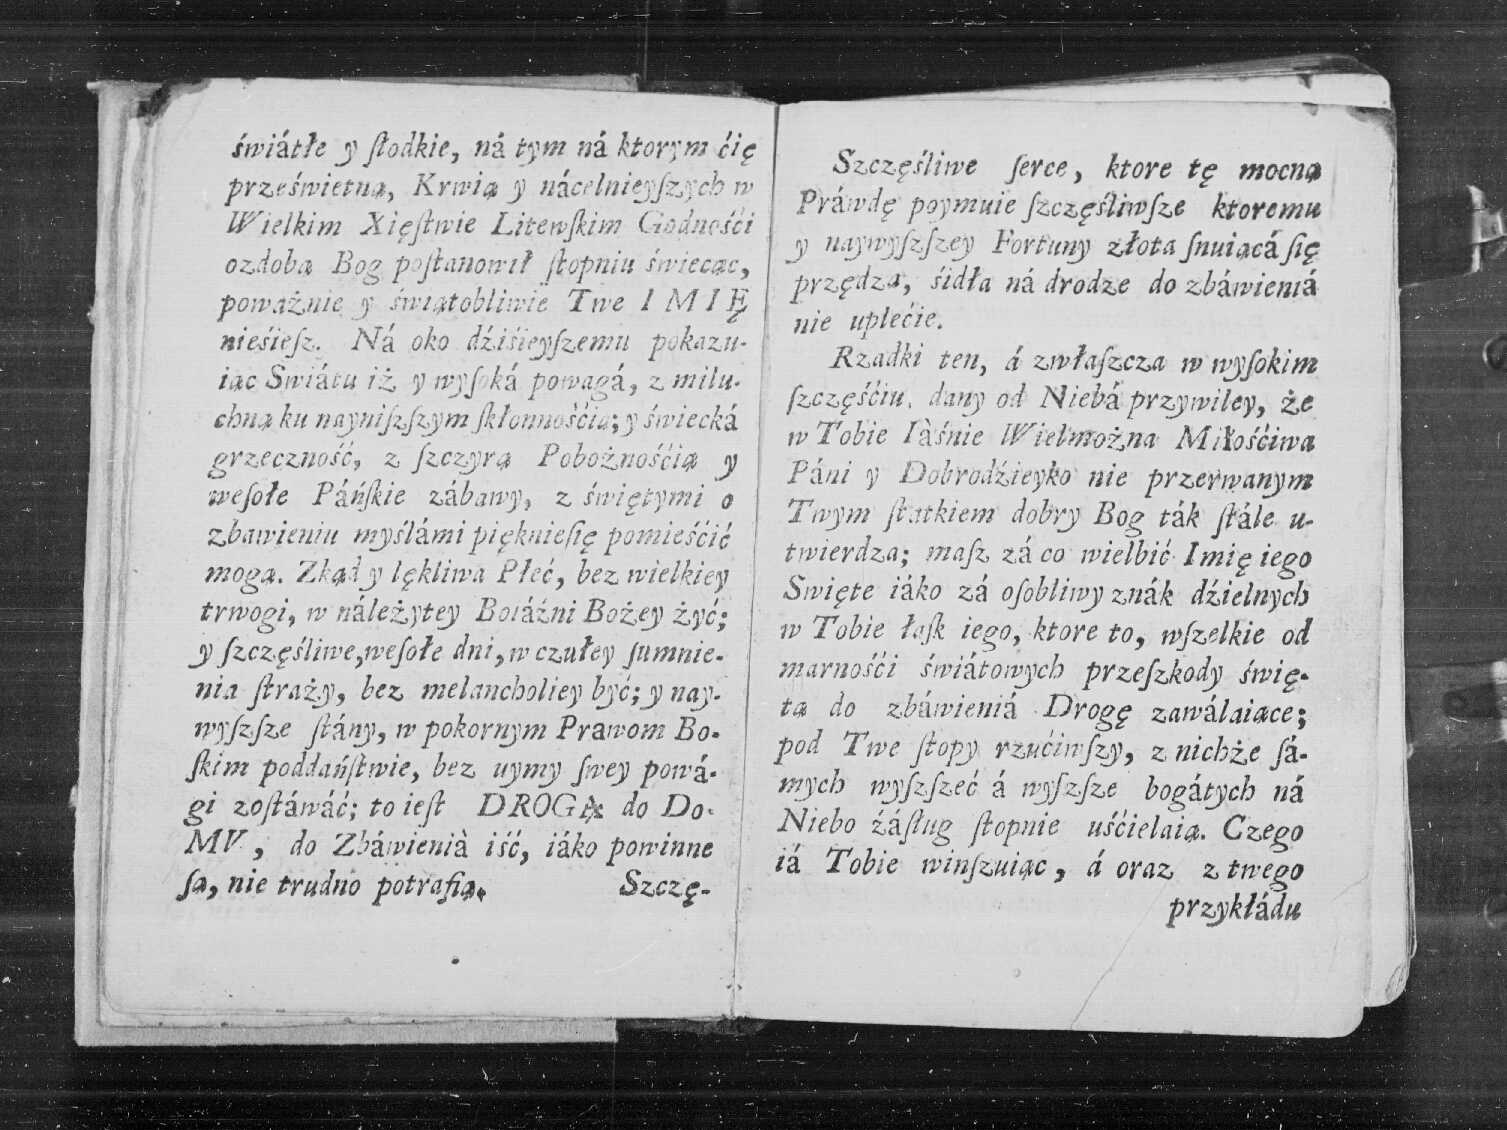 świátłe y ſłodkie, ná tym ná ktorym ćię
prześwietną, Krwią y nácelnieyſzych w
Wielkim Xięſtwie Litewſkim Godnośći
ozdobą Bog poſtanowił ſtopniu świecąc,
poważnie y świątobliwie Twe IMIĘ
nieśieſz. Ná oko dźiśieyſzemu pokazu-
iąc Swiátu iż y wyſoká powagá, z milu-
chną ku nayniſzſzym ſkłonnośćią; y świecká
grzeczność, z ſzczyrą Pobożnośćią y
weſołe Páńſkie zábawy, z świętymi o
zbawieniu myślámi pięknieſię pomieśćić
mogą. Zkąd y lękliwa Płeć, bez wielkiey
trwogi, w náleżytey Boiáźni Bożey żyć;
y ſzczęśliwe, weſołe dni, w czułey ſumnie-
nia ſtraży, bez melancholiey być; y nay-
wyſzſze ſtány, w pokornym Prawom Bo-
ſkim poddańſtwie, bez uymy ſwey powá-
gi zoſtáwáć; to ieſt DROGĄ do Do-
MV, do Zbáwienià iść, iáko powinne
ſą, nie trudno potrafią. Szczę-
Szczęśliwe ſerce, ktore tę mocną
Práwdę poymuie ſzczęśliwſze ktoremu
y naywyſzſzey Fortuny złota ſnuiącá ſię
przędza, śidła ná drodze do zbáwieniá
nie uplećie.
Rzadki ten, á zwłaſzcza w wyſokim
ſzczęśćiu, dany od Niebá przywiley, że
w Tobie Iàśnie Wielmożna Miłośćiwa
Páni y Dobrodźieyko nie przerwanym
Twym ſtatkiem dobry Bog ták ſtále u-
twierdza; maſz zá co wielbić Imię iego
Swięte iáko zá oſobliwy znák dźielnych
w Tobie łaſk iego, ktore to, wſzelkie od
marnośći świátowych przeſzkody świę-
tą do zbáwieniá Drogę zawálaiące;
pod Twe ſtopy rzućiwſzy, z nichże ſá-
mych wyſzſzeć á wyſzſze bogátych ná
Niebo źáſług ſtopnie uśćielaią. Czego
iá Tobie winſzuiąc, á oraz z twego
przykłádu